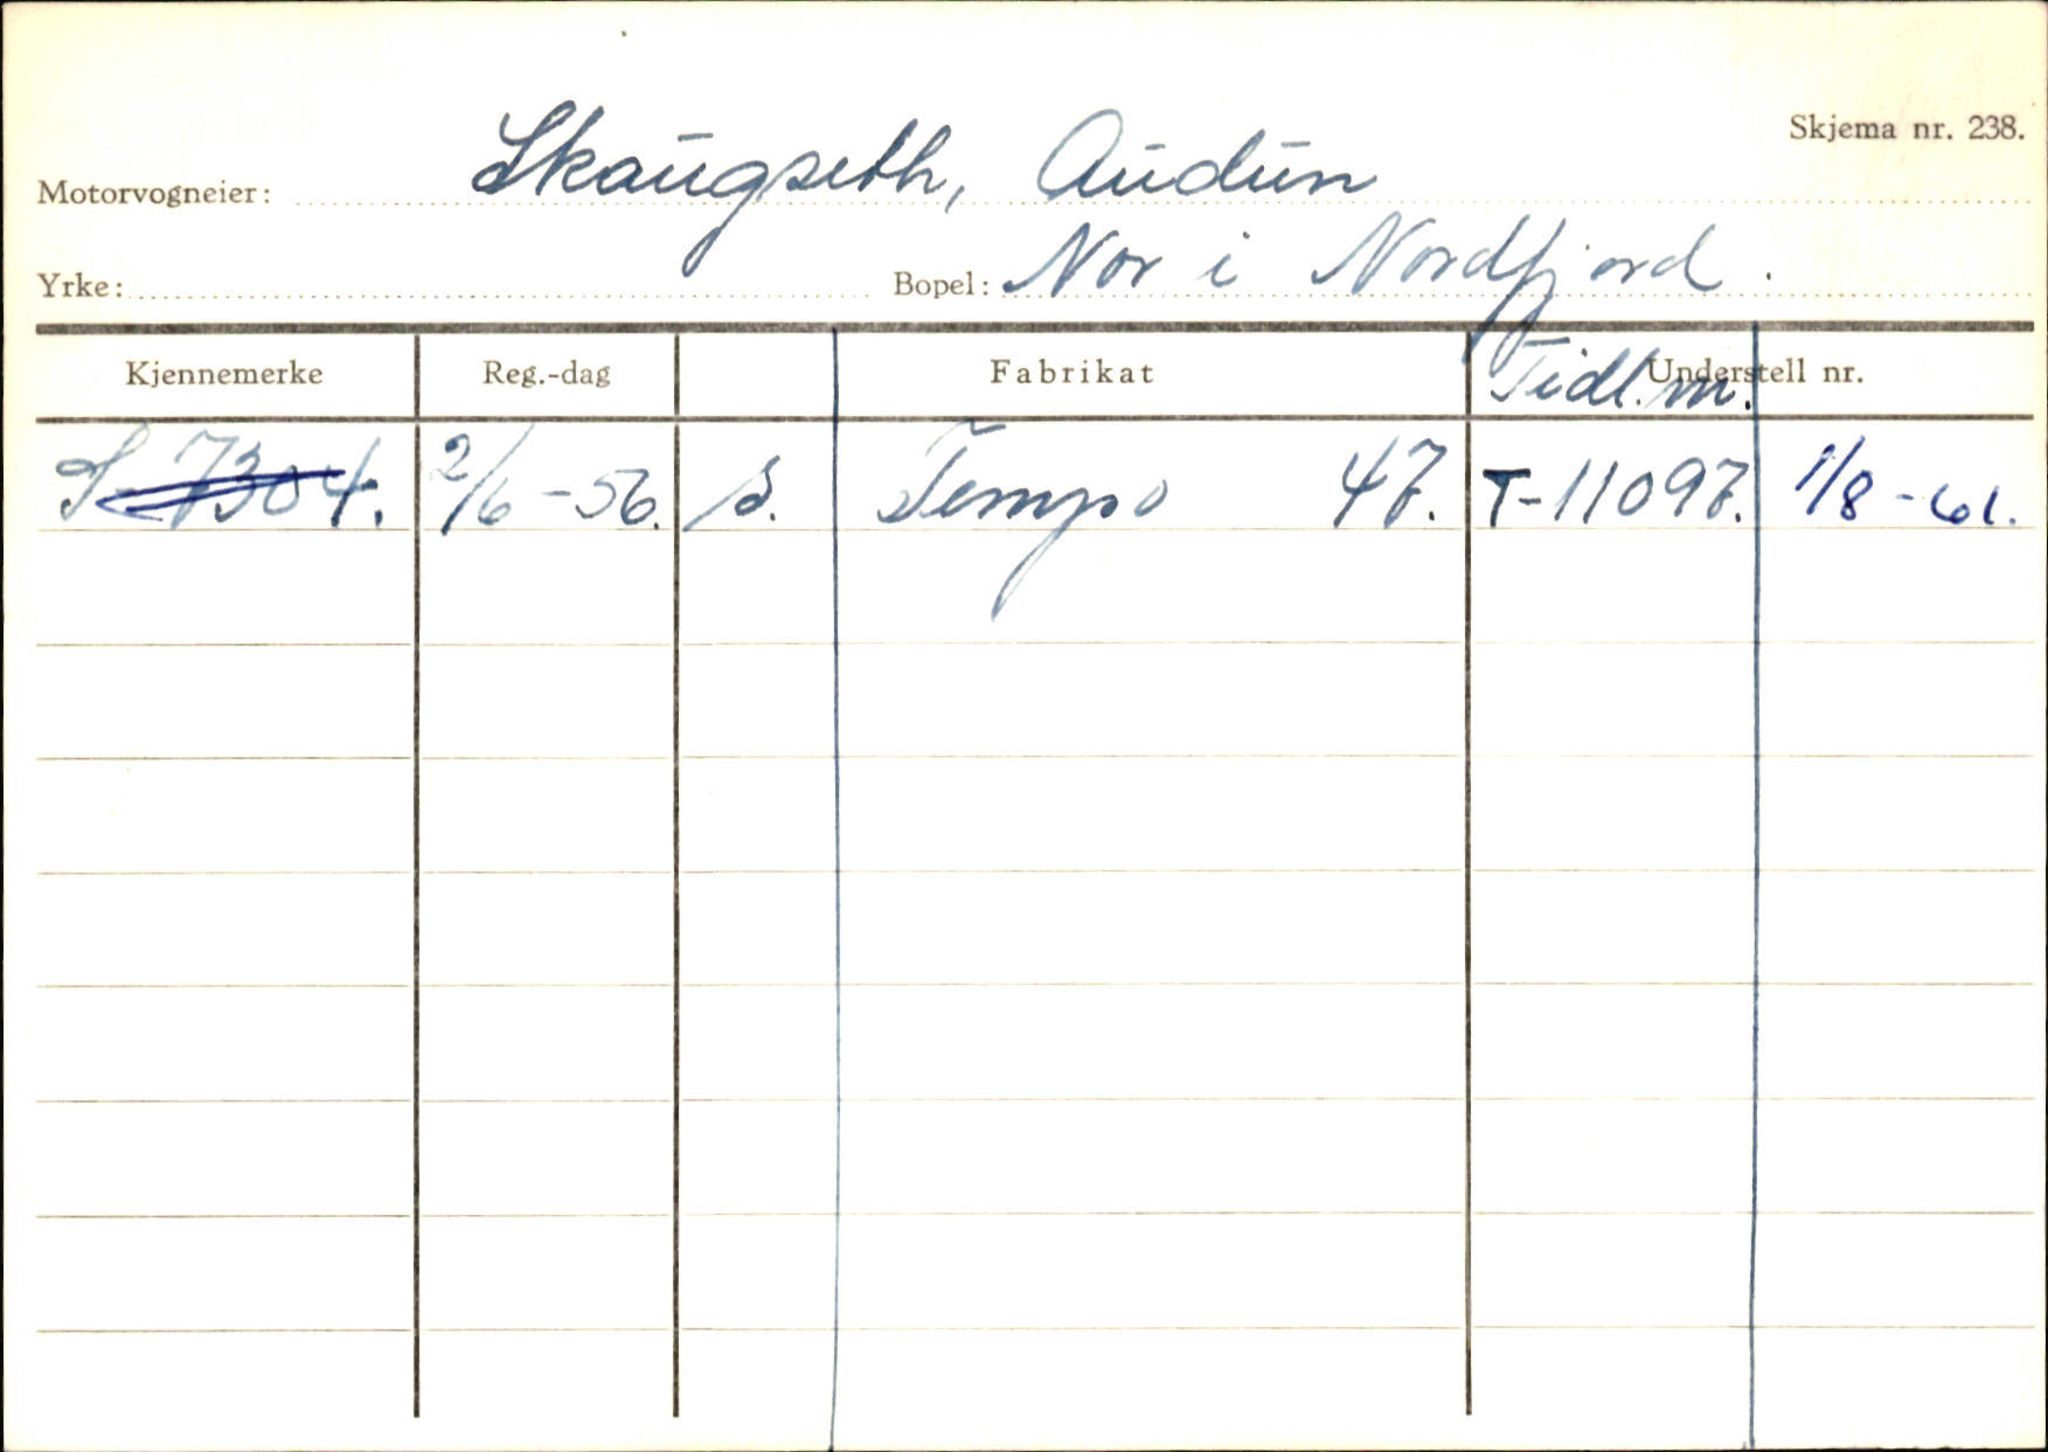 Skjema nr. 238.
Motorvogneier: Skaugseth, Audun
Yrke: Bopel: Nor i Nordfjord.
Kjennemerke Reg.-dag Fabrikat Tidl. m. Understell nr.
S-7304. 2/6-56. S. Tempo 47. T-11097. 1/8-61.